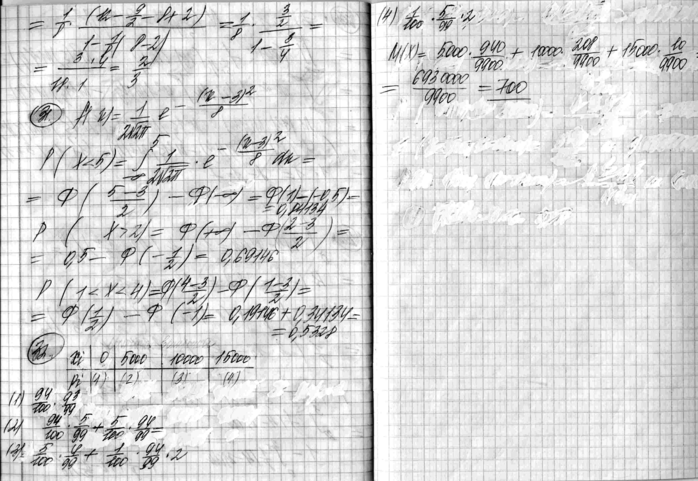 = 1/8 · (x - 9/2 - 8 + 2) / (1 - 1/8(8-2)) = 1/8 · (3/2) / (1 - 3/4) =
= 3·4 / 18·1 = 2/3
(31) f(x) = 1/(2√2π) e^(-(x-3)²/8)
P(X<5) = ∫_{-∞}^{5} 1/(2√2π) · e^(-(x-3)²/8) dx =
= Ф((5-3)/2) - Ф(-∞) = Ф(1) - (-0,5) =
= 0,84134
P(X>2) = Ф(+∞) - Ф((2-3)/2) =
= 0,5 - Ф(-1/2) = 0,69146
P(1<X<4) = Ф((4-3)/2) - Ф((1-3)/2) =
= Ф(1/2) - Ф(-1) = 0,19146 + 0,34134 =
= 0,5328
(32) xi 0 5000 10000 15000
pi (1) (2) (3) (4)
(1) 94/100 · 93/99
(2) 94/100 · 5/99 + 5/100 · 94/99 =
(3) = 5/100 · 4/99 + 1/100 · 94/99 · 2
(4) 1/100 · 5/99 · 2
M(X) = 5000 · 940/9900 + 10000 · 208/9900 + 15000 · 10/9900 =
= 6930000/9900 = 700